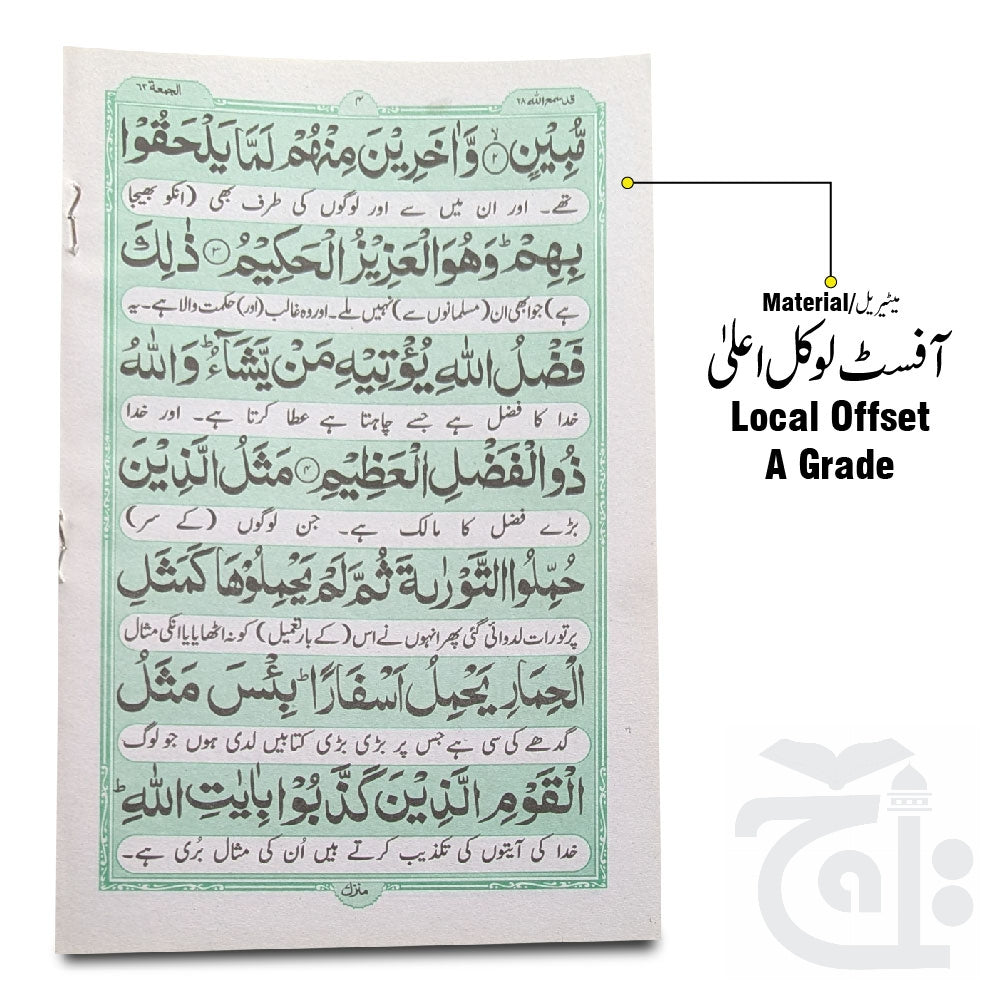 قد سمع الله ٢٨
٤
الجمعة ٦٢
مُّبِيْنٍ ۙ۝۲ وَّاٰخَرِيْنَ مِنْهُمْ لَمَّا يَلْحَقُوْا
تھے۔ اور ان میں سے اور لوگوں کی طرف بھی (انکو بھیجا
بِهِمْ ؕ وَهُوَ الْعَزِيْزُ الْحَكِيْمُ ۝۳ ذٰلِكَ
ہے) جو ابھی ان (مسلمانوں سے) نہیں ملے۔ اور وہ غالب (اور) حکمت والا ہے۔ یہ
فَضْلُ اللّٰهِ يُؤْتِيْهِ مَنْ يَّشَآءُ ؕ وَاللّٰهُ
خدا کا فضل ہے جسے چاہتا ہے عطا کرتا ہے۔ اور خدا
ذُو الْفَضْلِ الْعَظِيْمِ ۝۴ مَثَلُ الَّذِيْنَ
بڑے فضل کا مالک ہے۔ جن لوگوں (کے سر)
حُمِّلُوا التَّوْرٰىةَ ثُمَّ لَمْ يَحْمِلُوْهَا كَمَثَلِ
پر تورات لدوائی گئی پھر انہوں نے اس (کے بار تعمیل) کو نہ اٹھایا یا انکی مثال
الْحِمَارِ يَحْمِلُ اَسْفَارًا ؕ بِئْسَ مَثَلُ
گدھے کی سی ہے جس پر بڑی بڑی کتابیں لدی ہوں جو لوگ
الْقَوْمِ الَّذِيْنَ كَذَّبُوْا بِاٰيٰتِ اللّٰهِ ؕ
خدا کی آیتوں کی تکذیب کرتے ہیں اُن کی مثال بُری ہے۔
Material/میٹیریل
آفسٹ لوکل اعلیٰ
Local Offset
A Grade